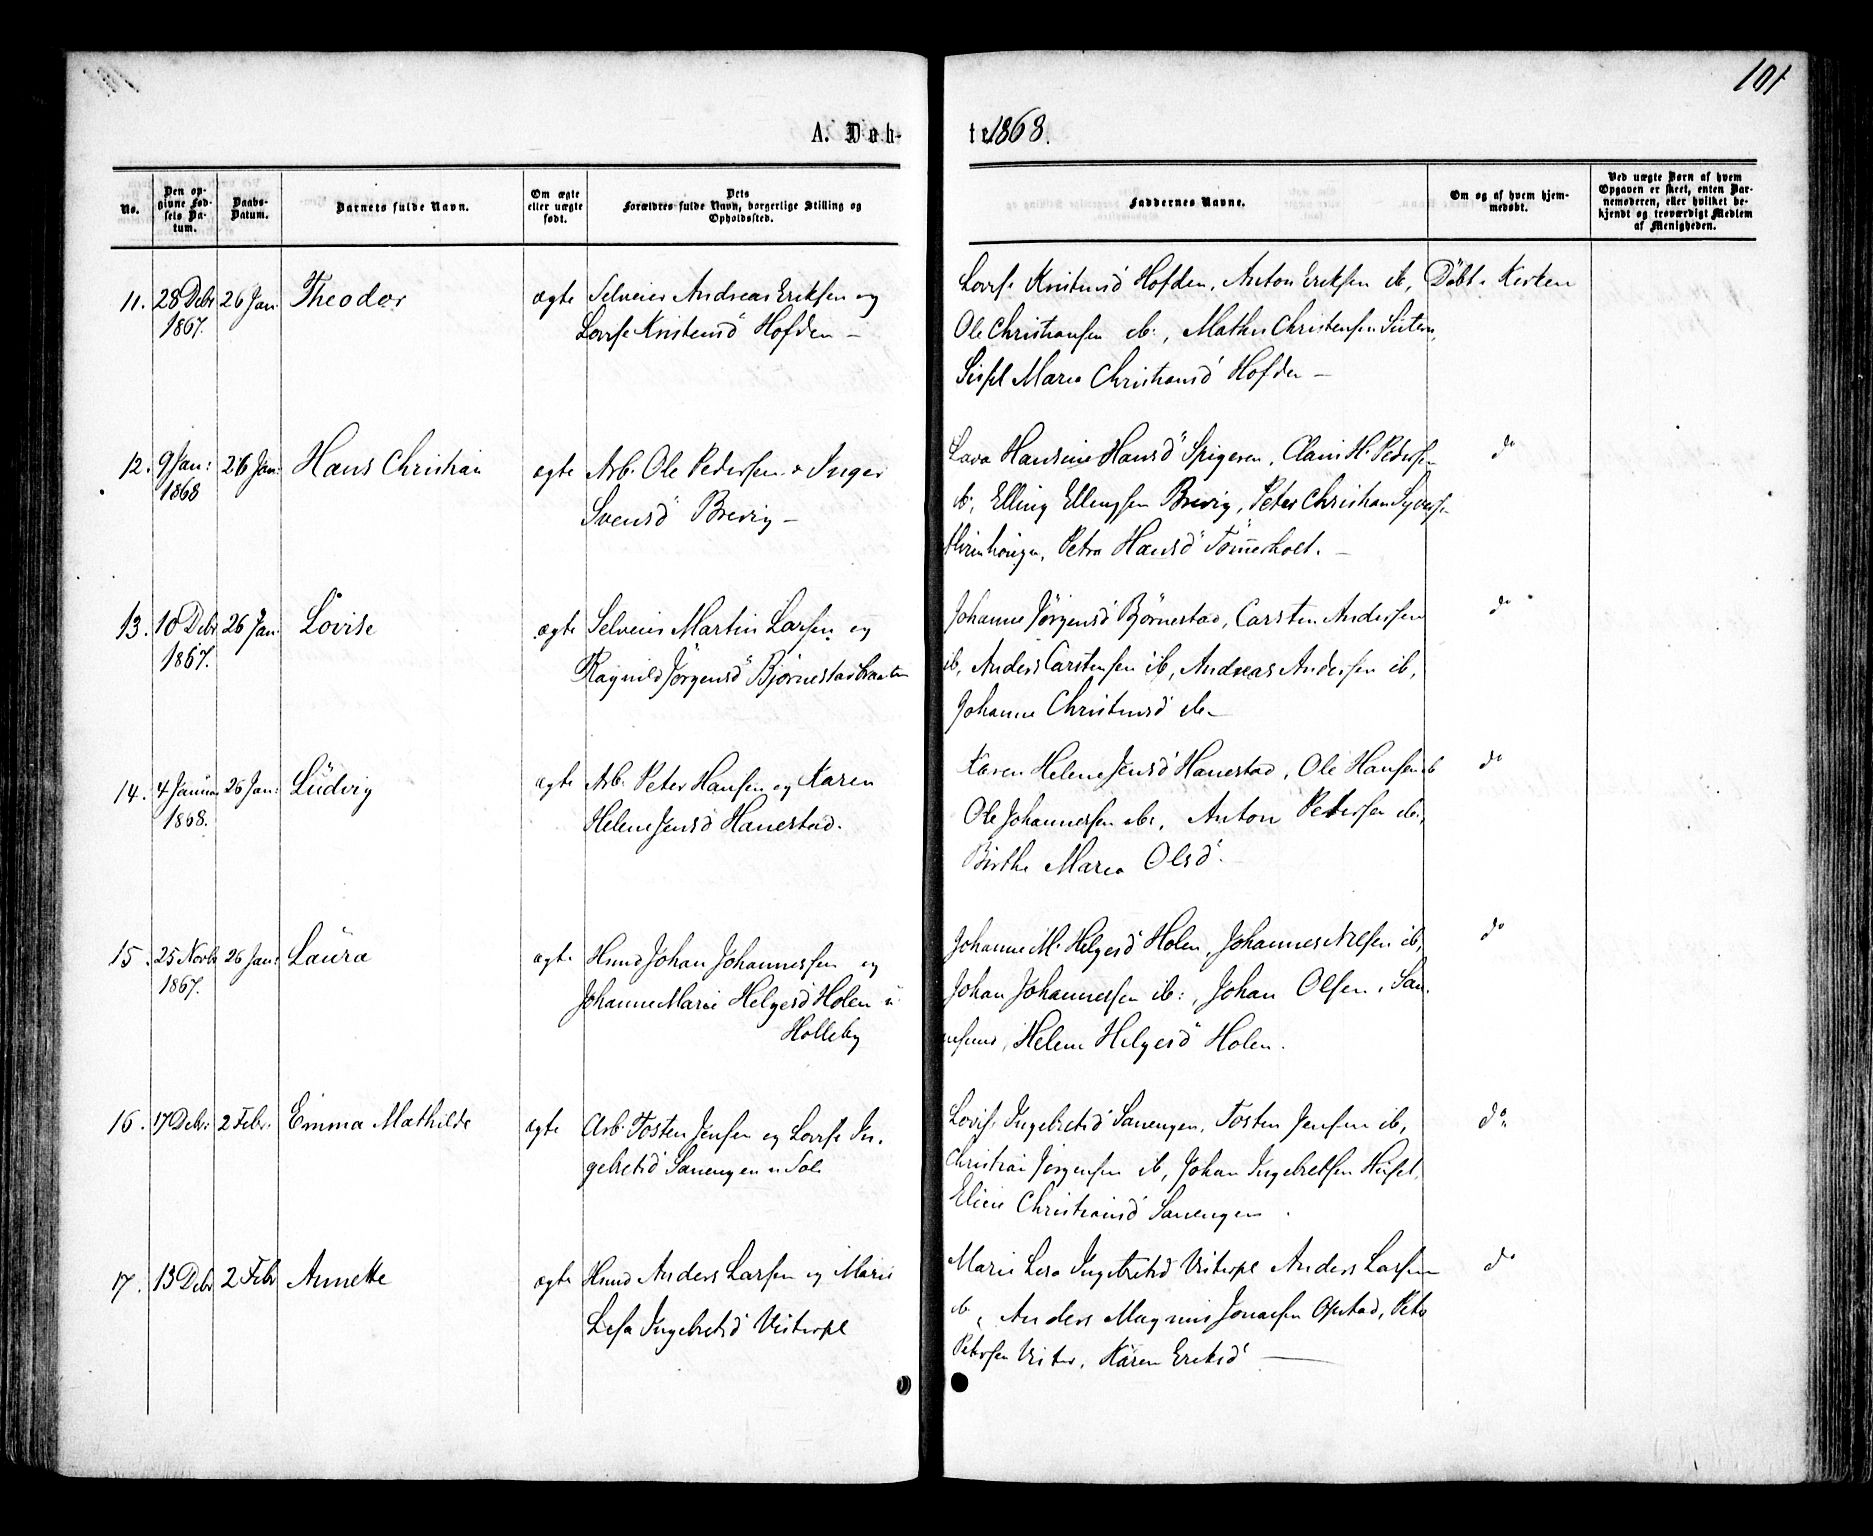 101
A. Døb-
te 1868.
No.
Den op-
givne Fød-
sels Da-
tum.
Daabs-
Datum.
Barnets fulde Navn.
Om ægte
eller uægte
født.
Dets
Forældres fulde Navn, borgerlige Stilling og
Opholdssted.
Faddernes Navne.
Om og af hvem hjem-
medøbt.
Ved uægte Børn af hvem
Opgaven er skeet, enten Bar-
nemoderen, eller hvilket be-
kjendt og troværdigt Medlem
af Menigheden.
11. 28 Debr 26 Jan Theodor ægte Selveier Andreas Eriksen og
1867.
Lovise Kristensd Hofden –
Lovise Kristensd Hofden, Anton Eriksen ib,
Ole Christiansen ib:, Mathis Christensen
Maria Christiansd Hofden –
Døbt i Kirken
12. 9 Jan: 26 Jan: Hans Christian ægte Arb. Ole Pedersen & Inger
1868
Svensd Brevig –
Hansine Hansd Spigeren, H. Pedersen
ib, Elling Ellingsen Brevig, Peter Christian
Petra Hansd Tømmerholt. –
do
13. 10 Debr 26 Jan Lovise ægte Selveier Martin Larsen og
1867.
Ragnild Jørgensd Bjørnestadbraaten
Johanne Jørgensd Bjørnestad, Carsten Andersen
ib, Anders Carstensen ib, Andreas Andersen ib,
Johanne Christensd ib –
do
14. 4 Januar 26 Jan: Ludvig ægte Arb. Peter Hansen og Karen
1868.
Helene Jensd Hanestad.
Karen Helene Jensd Hanestad, Ole Hansen ib
Ole Johannesen ib:, Anton Pedersen ib,
Birthe Maria Olsd. –
do
15. 25 Novbr 26 Jan: Laura ægte Hmd Johan Johannesen og
1867.
Johanne Marie Helgesd Holen u
Holleby
Johanne M. Helgesd Holen, Johannes Nilsen ib,
Johan Johannesen ib:, Johan Olsen,
Helene Helgesd Holen.
do
16. 17 Debr: 2 Febr. Emma Mathilde ægte Arb. Tosten Jensen og Lovise In-
gebretsd Sanengen u Sole
Lovise Ingebretsd Sanengen, Tosten Jensen ib,
Christian Jørgensen ib, Johan Ingebretsen
Christiansd Sanengen.
do
17. 13 Debr 2 Febr Annette ægte Hmd Anders Larsen og Marie
Lisa Ingebretsd Visterpl
Marie Lisa Ingebretsd Visterpl Anders Larsen
ib, Anders Magnus Jonassen Opstad, Peter
Petersen Vister, Karen Eriksd –
do